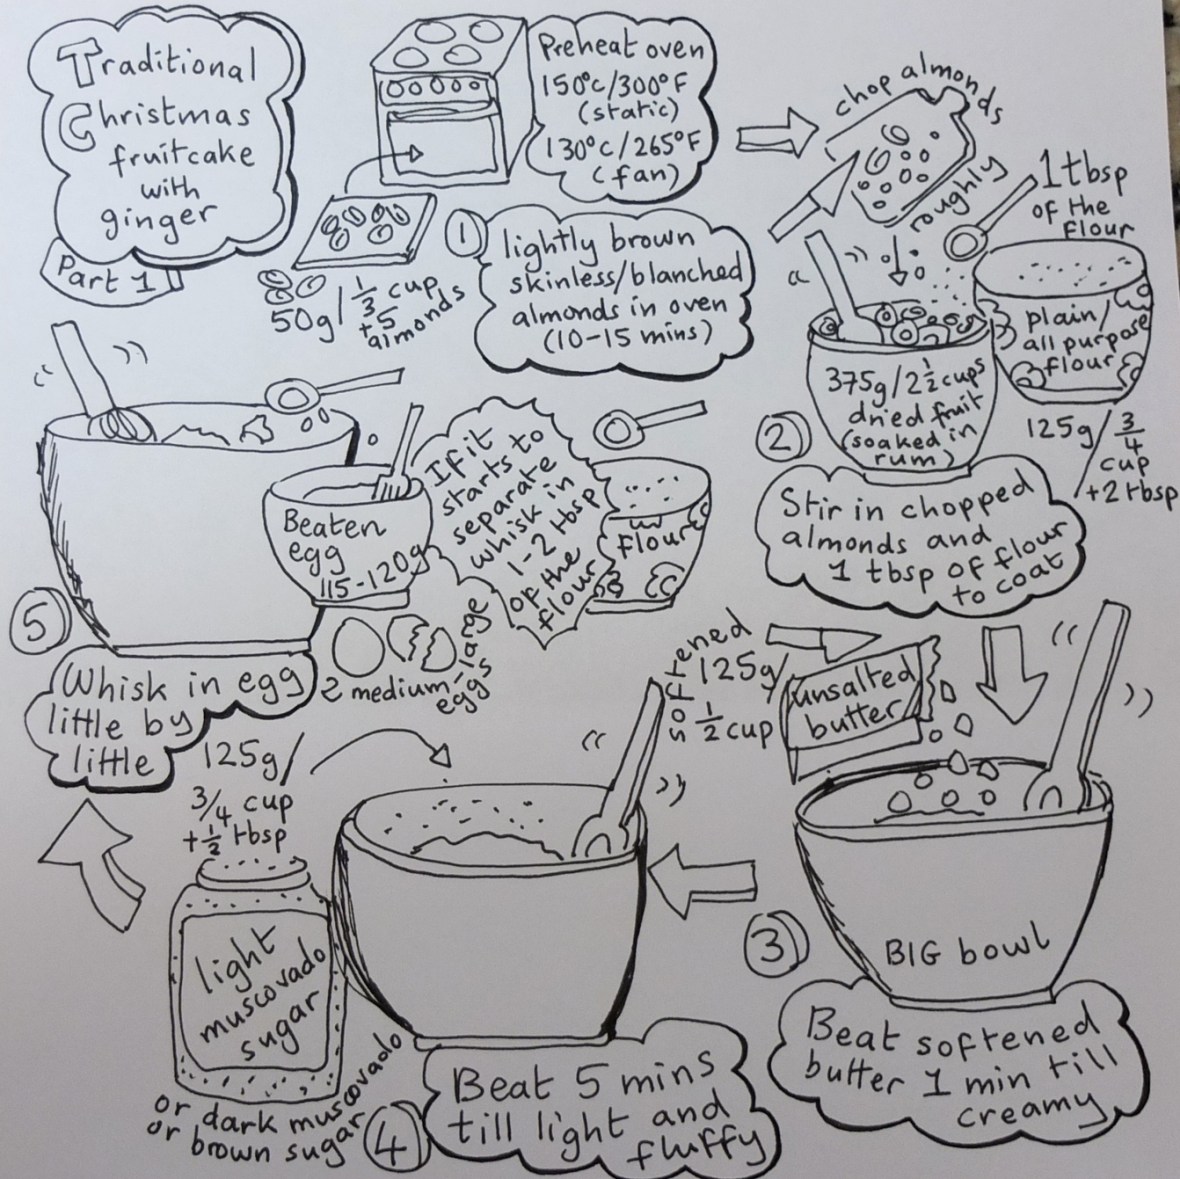 Traditional
Christmas
fruitcake
with
ginger
Part 1
Preheat oven
150°c/300°F
(static)
130°c/265°F
(fan)
1
lightly brown
skinless/blanched
almonds in oven
(10-15 mins)
50g/ 1/3 cup
+5
almonds
chop almonds
roughly
1 tbsp
of the
flour
plain/
all purpose
flour
125g/ 3/4
cup
+2 tbsp
375g/2 1/2 cups
dried fruit
(soaked in
rum)
2
Stir in chopped
almonds and
1 tbsp of flour
to coat
softened
125g/
1/2 cup
unsalted
butter
BIG bowl
3
Beat softened
butter 1 min till
creamy
125g/
3/4 cup
+ 1/2 tbsp
light
muscovado
sugar
or dark muscovado
or brown sugar
4
Beat 5 mins
till light and
fluffy
5
Whisk in egg
little by
little
Beaten
egg
115-120g
2 medium-large
eggs
If it
starts to
separate
whisk in
1-2 tbsp
of the
flour
flour